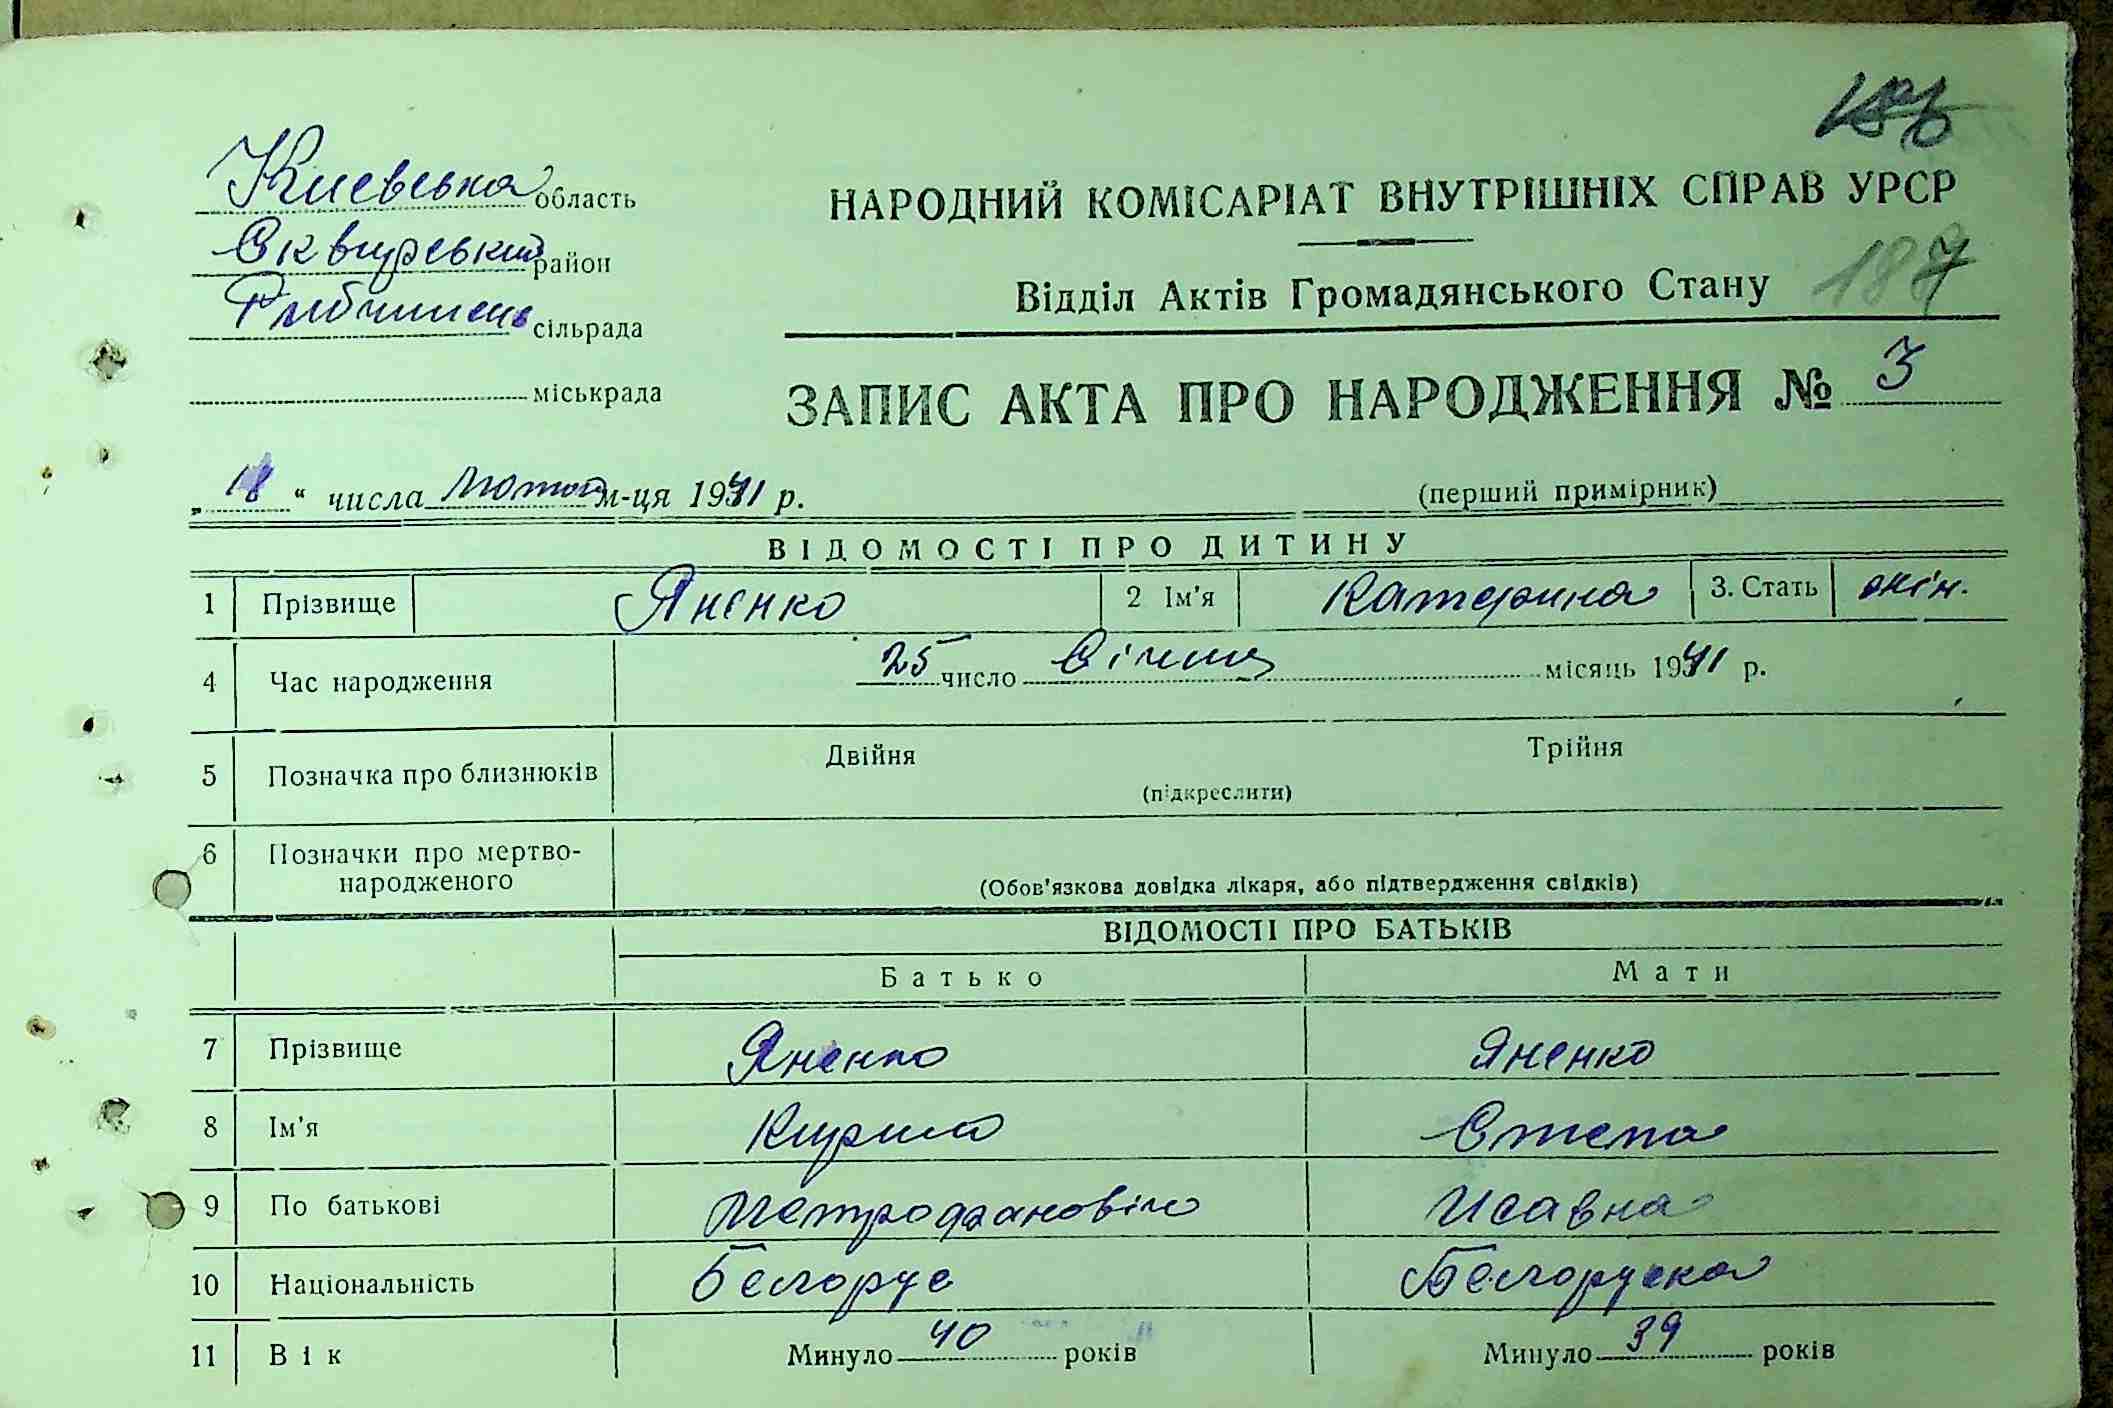 186
Киевська область
Сквирський район
сільрада
міськрада
НАРОДНИЙ КОМІСАРІАТ ВНУТРІШНІХ СПРАВ УРСР
Відділ Актів Громадянського Стану 187
ЗАПИС АКТА ПРО НАРОДЖЕННЯ № 3
„18“ числа Лютого м-ця 1941 р.
(перший примірник)
ВІДОМОСТІ ПРО ДИТИНУ
1 Прізвище Яненко 2 Ім'я Катерина 3. Стать жін.
4 Час народження 25 число Січня місяць 1941 р.
5 Позначка про близнюків Двійня Трійня
(підкреслити)
6 Позначки про мертво-
народженого
(Обов'язкова довідка лікаря, або підтвердження свідків)
ВІДОМОСТІ ПРО БАТЬКІВ
Батько Мати
7 Прізвище Яненко Яненко
8 Ім'я Кирило Степа
9 По батькові Метрофановіч Исавна
10 Національність Белорус Белоруска
11 Вік Минуло 40 років Минуло 39 років